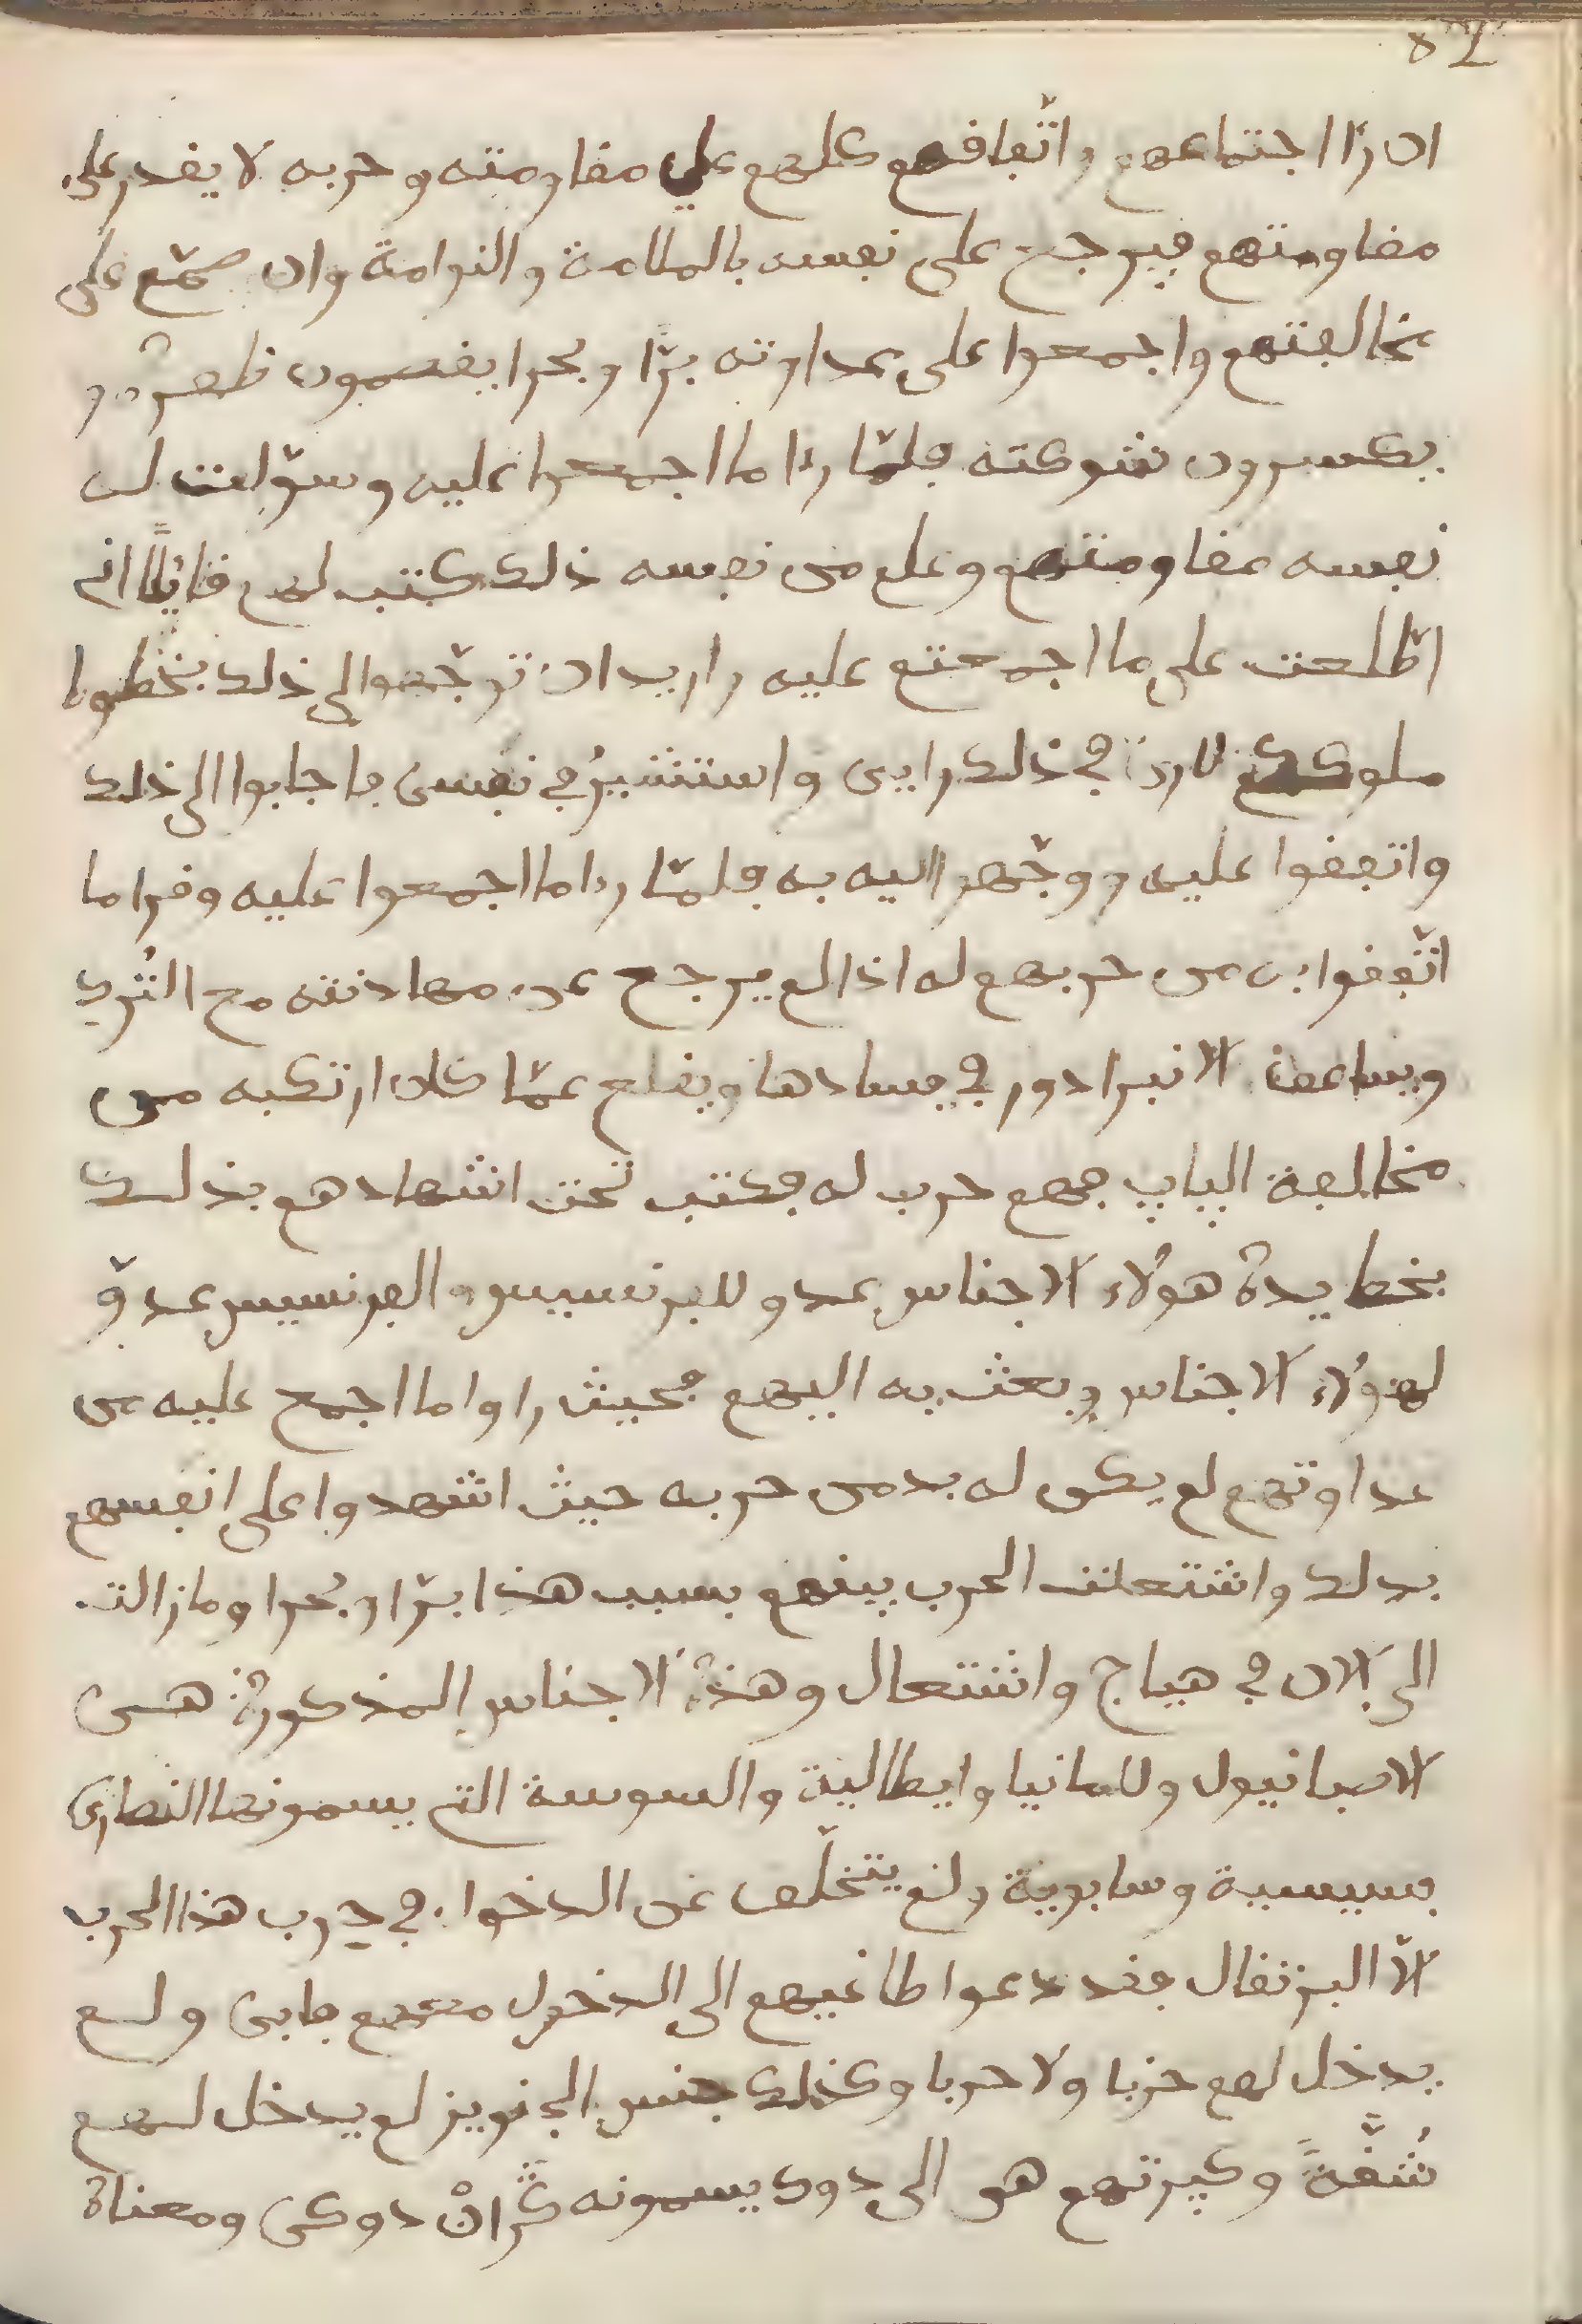 ان رءا اجتماعهم واتّفافهم كلهم على مفاومته وحربه لا يفدر على
مفاومتهم فيرجع على نفسه بالملامة والندامة وان صمّم على
مخالفتهم واجمعوا على عداوته برًّا وبحرا يفصمون ظهره و
يكسرون شوكته فلمّا رءا ما اجمعوا عليه وسوّلت له
نفسه مفاومتهم وعلم من نفسه ذلك كتب لهم فائلًا انى
اطّلعت على ما اجمعتم عليه واريد ان توجّهوا لى ذلك بخطوط
ملوككم لارى فى ذلك رايى واستشير فى نفسى فاجابوا الى ذلك
واتففوا عليه ووجّهوا اليه به فلمّا رءا ما اجمعوا عليه وفرا ما
اتّففوا به من حربهم له اذا لم يرجع عن مهادنته مع التُّرك
ويساعف الانبرادور فى فسادها ويفلع عمّا كان ارتكبه من
مخالفة الپاپ فهم حرب له فكتب تحت اشهادهم بذلك
بخط يده هولاء الاجناس عدو للفرنسيس والفرنسيس عدوّ
لهولاء الاجناس وبعث به اليهم فحيث راوا ما اجمع عليه من
عداوتهم لم يكن له بد من حربه حيث اشهدوا على انفسهم
بذلك واشتعلت الحرب بينهم بسبب هذا برّا وبحرا وما زالت
الى الان فى هياج واشتعال وهذه الاجناس المذكورة هى
الاصبانيول وللمانيا وايطالية والسوسة التى يسمونها النصارى
سبيسية وسابوية ولم يتخلّف عن الدخول فى حرب هذا الحرب
الّا البرتفال ففد دعوا طاغيهم الى الدخول معهم فابى ولم
يدخل لهم حزبا ولا حربا وكذلك جنس الجنويز لم يدخل لهم
شُفّةً وكبيرتهم هو الى دوك يسمونه كران دوكى ومعناه